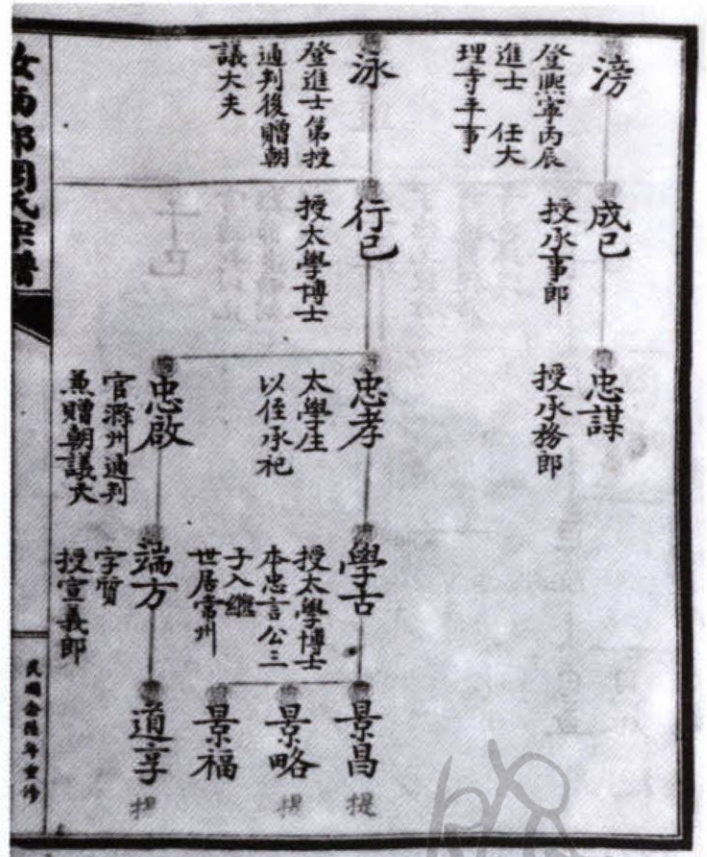 滂
登熙寧丙辰
進士 任大
理寺平事
成己
授承事郎
忠謀
授承務郎
泳
登進士第授
通判後贈朝
議大夫
行己
授太學博士
忠孝
太學生
以侄承祀
學古
授太學博士
本忠言公三
子入繼
世居常州
景昌
提
景略
提
景福
忠啟
官滁州通判
兼贈朝議大
端方
字質
授宣義郎
道亨
提
汝南郡周氏宗譜